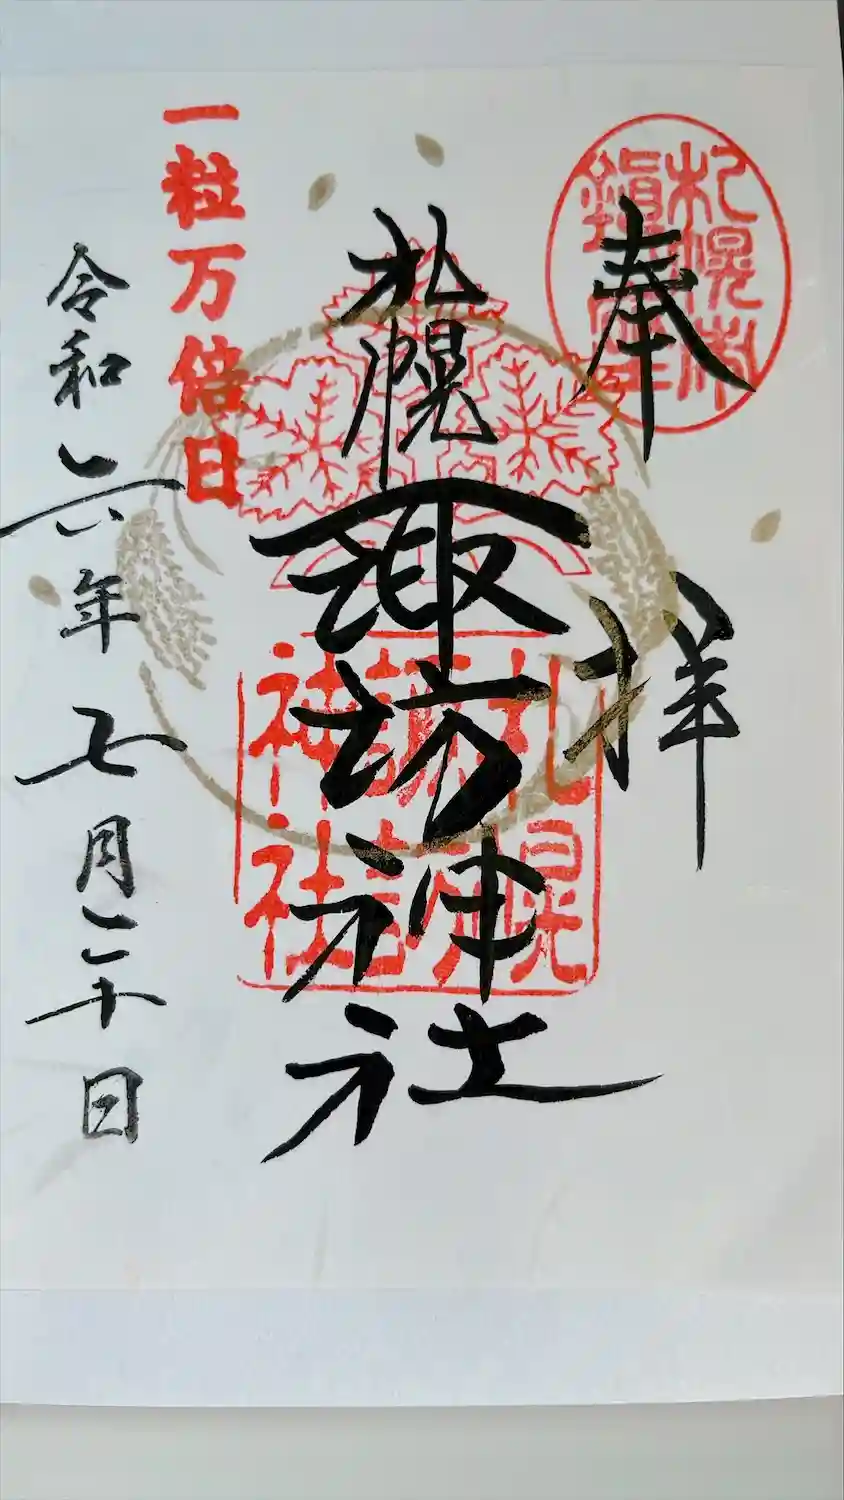 奉拝
札幌市
鎮座
札幌諏訪神社
札幌
諏訪
神社
一粒万倍日
令和六年七月二十日